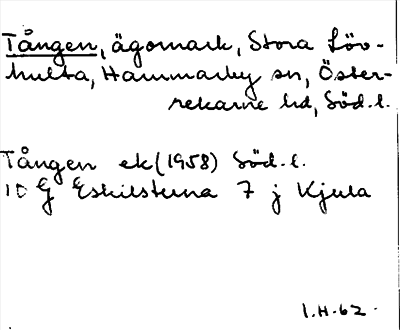 Tången, ägomark, Stora Löv-
hulta, Hammarby sn, Öster-
rekarne hd, Söd. l.
Tången ek (1958) Söd. l.
10 G Eskilstuna 7 j Kjula
I.H. 62.